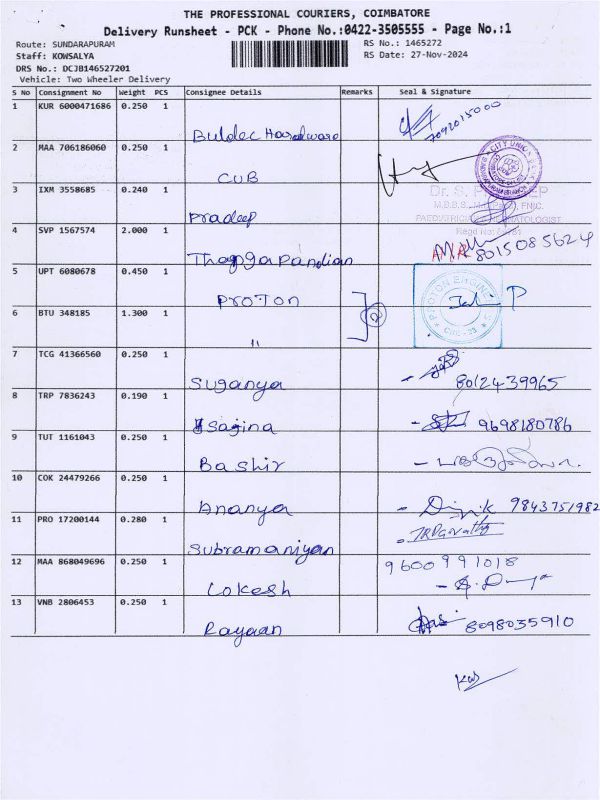 THE PROFESSIONAL COURIERS, COIMBATORE
Delivery Runsheet - PCK - Phone No.:0422-3505555 - Page No.:1
Route: SUNDARAPURAM
Staff: KOWSALYA
DRS No.: DCJB146527201
Vehicle: Two Wheeler Delivery
RS No.: 1465272
RS Date: 27-Nov-2024
S No Consignment No Weight PCS Consignee Details Remarks Seal & Signature
1 KUR 6000471686 0.250 1 Buldec Hardware 7092015000
2 MAA 706186060 0.250 1 CUB CITY UNION
3 IXM 3558685 0.240 1 Pradeep
Dr. S. P
M.B.B.S.
4 SVP 1567574 2.000 1 Thangapandian 8015085624
5 UPT 6080678 0.450 1 Proton
PROTON ENGINEERS
CBE-23
6 BTU 348185 1.300 1 "
2
7 TCG 41366560 0.250 1 Suganya 8012439965
8 TRP 7836243 0.190 1 Sagina 9698180786
9 TUT 1161043 0.250 1 Bashir
10 COK 24479266 0.250 1 Ananya 9843751982
11 PRO 17200144 0.280 1 Subramaniyan
12 MAA 868049696 0.250 1 Lokesh 9600991018
13 VNB 2806453 0.250 1 Rayaan 8098035910